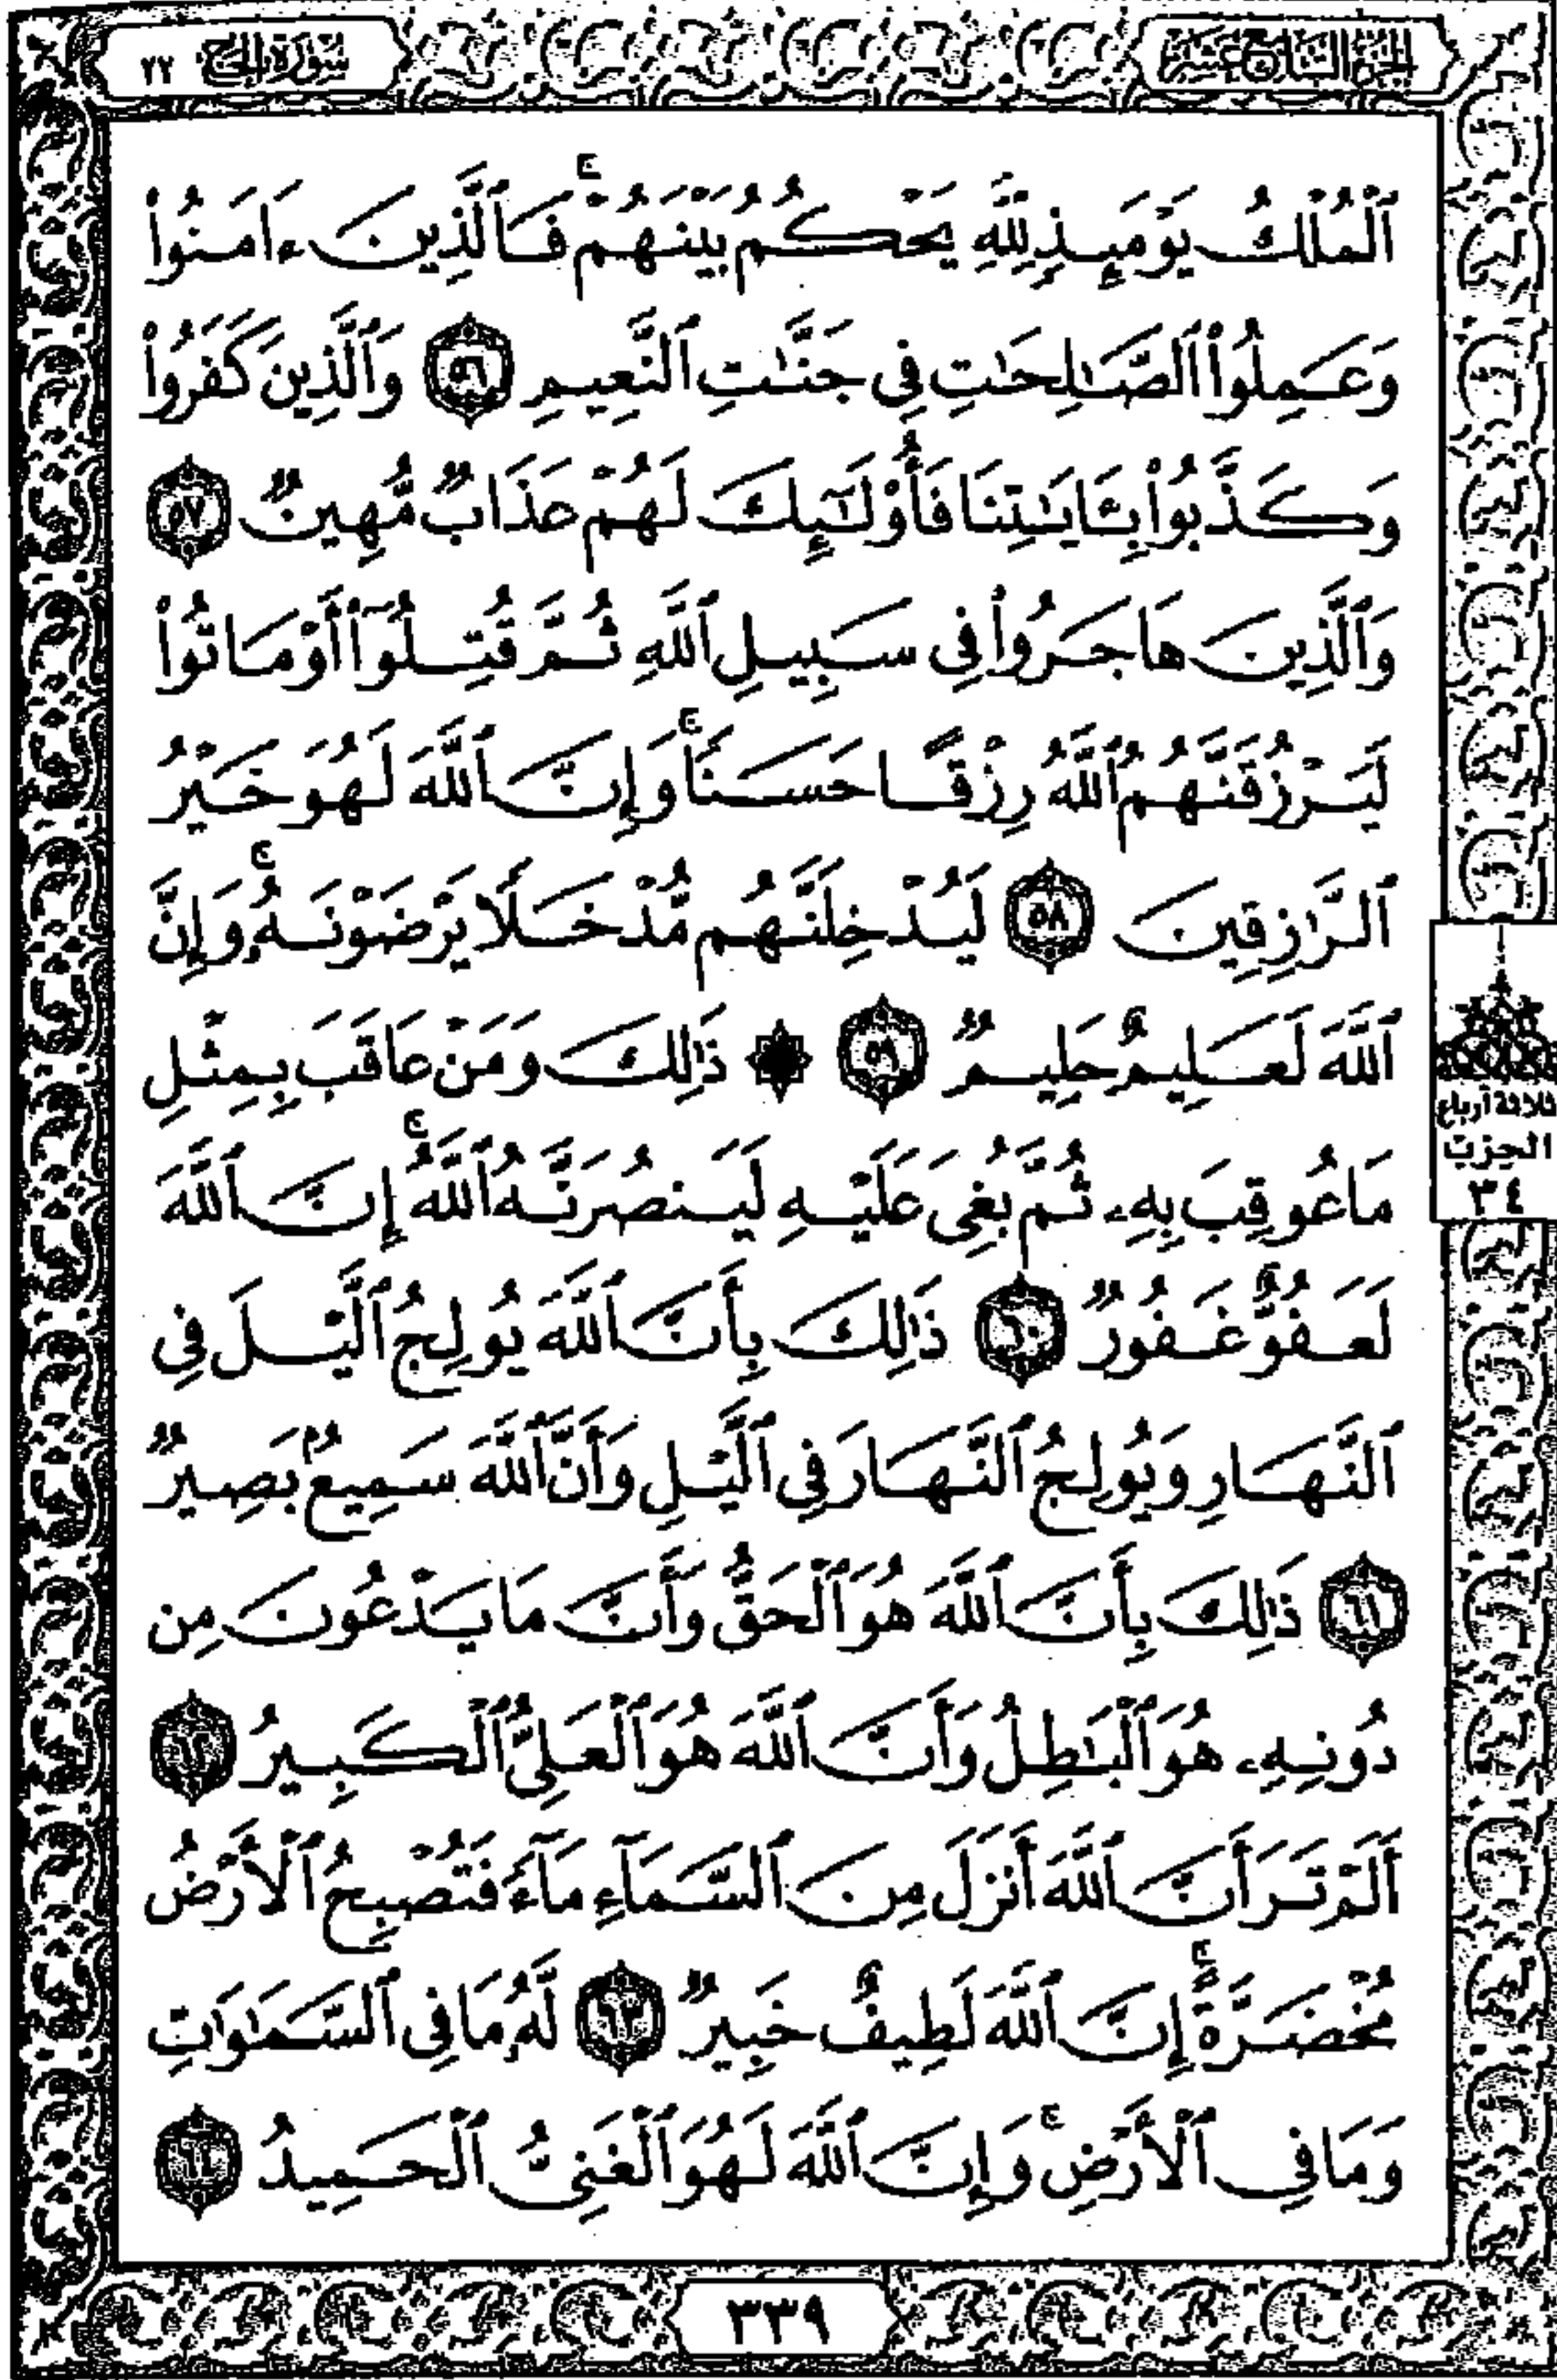 الجزء السابع عشر
سورة الحج ٢٢
ٱلْمُلْكُ يَوْمَئِذٍ لِّلَّهِ يَحْكُمُ بَيْنَهُمْ ۚ فَٱلَّذِينَ ءَامَنُوا۟
وَعَمِلُوا۟ ٱلصَّـٰلِحَـٰتِ فِى جَنَّـٰتِ ٱلنَّعِيمِ ٥٦ وَٱلَّذِينَ كَفَرُوا۟
وَكَذَّبُوا۟ بِـَٔايَـٰتِنَا فَأُو۟لَـٰٓئِكَ لَهُمْ عَذَابٌ مُّهِينٌ ٥٧
وَٱلَّذِينَ هَاجَرُوا۟ فِى سَبِيلِ ٱللَّهِ ثُمَّ قُتِلُوٓا۟ أَوْ مَاتُوا۟
لَيَرْزُقَنَّهُمُ ٱللَّهُ رِزْقًا حَسَنًا ۚ وَإِنَّ ٱللَّهَ لَهُوَ خَيْرُ
ٱلرَّٰزِقِينَ ٥٨ لَيُدْخِلَنَّهُم مُّدْخَلًا يَرْضَوْنَهُۥ ۚ وَإِنَّ
ٱللَّهَ لَعَلِيمٌ حَلِيمٌ ٥٩ ۞ ذَٰلِكَ وَمَنْ عَاقَبَ بِمِثْلِ
مَا عُوقِبَ بِهِۦ ثُمَّ بُغِىَ عَلَيْهِ لَيَنصُرَنَّهُ ٱللَّهُ ۚ إِنَّ ٱللَّهَ
لَعَفُوٌّ غَفُورٌ ٦٠ ذَٰلِكَ بِأَنَّ ٱللَّهَ يُولِجُ ٱلَّيْلَ فِى
ٱلنَّهَارِ وَيُولِجُ ٱلنَّهَارَ فِى ٱلَّيْلِ وَأَنَّ ٱللَّهَ سَمِيعٌۢ بَصِيرٌ
٦١ ذَٰلِكَ بِأَنَّ ٱللَّهَ هُوَ ٱلْحَقُّ وَأَنَّ مَا يَدْعُونَ مِن
دُونِهِۦ هُوَ ٱلْبَـٰطِلُ وَأَنَّ ٱللَّهَ هُوَ ٱلْعَلِىُّ ٱلْكَبِيرُ ٦٢
أَلَمْ تَرَ أَنَّ ٱللَّهَ أَنزَلَ مِنَ ٱلسَّمَآءِ مَآءً فَتُصْبِحُ ٱلْأَرْضُ
مُخْضَرَّةً ۗ إِنَّ ٱللَّهَ لَطِيفٌ خَبِيرٌ ٦٣ لَّهُۥ مَا فِى ٱلسَّمَـٰوَٰتِ
وَمَا فِى ٱلْأَرْضِ ۗ وَإِنَّ ٱللَّهَ لَهُوَ ٱلْغَنِىُّ ٱلْحَمِيدُ ٦٤
ثلاثة أرباع
الحزب
٣٤
٣٣٩